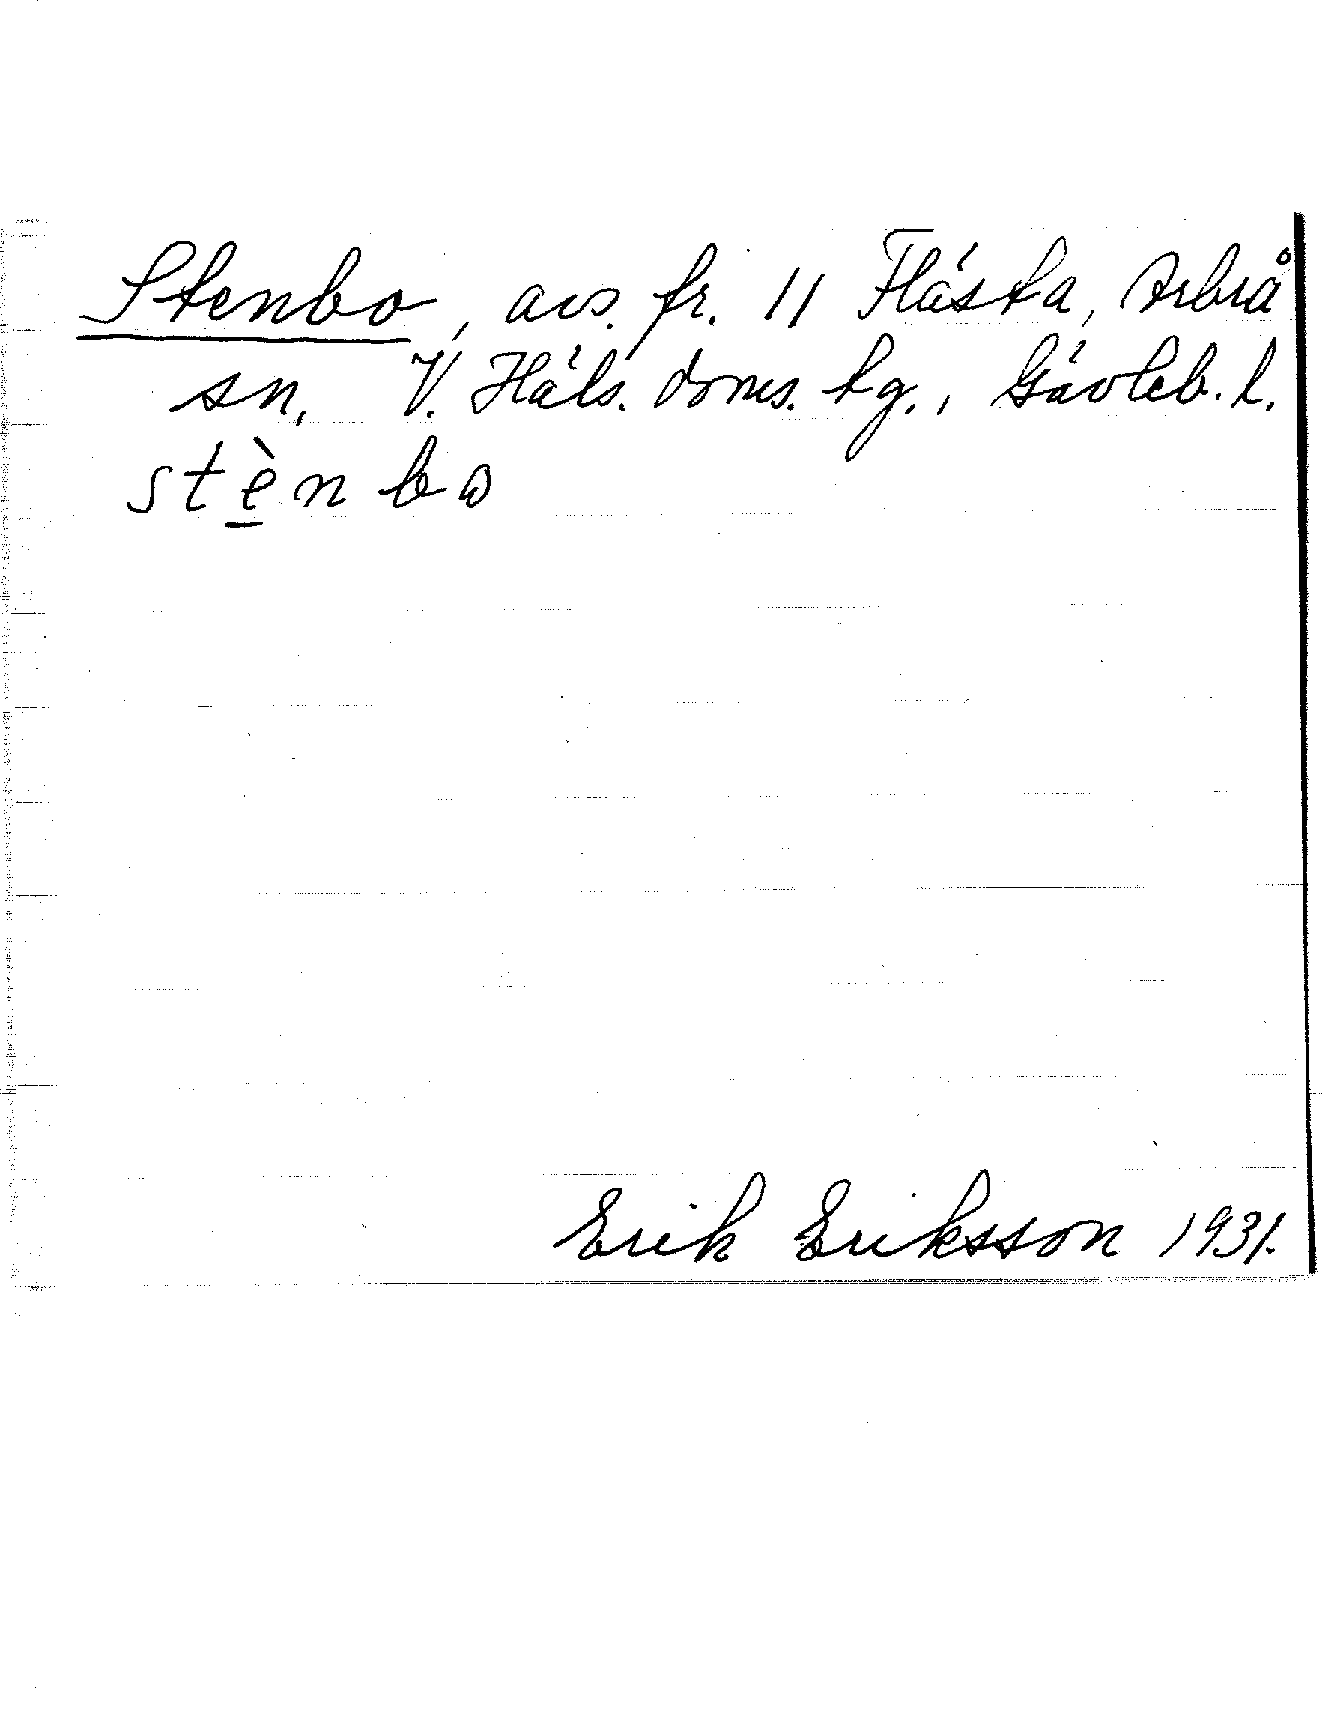 Stenbo, avs. fr. 11 Flästa, Arbrå
sn, V. Häls. doms. tg., Gävleb. l.
stènbω
Erik Eriksson 1931.